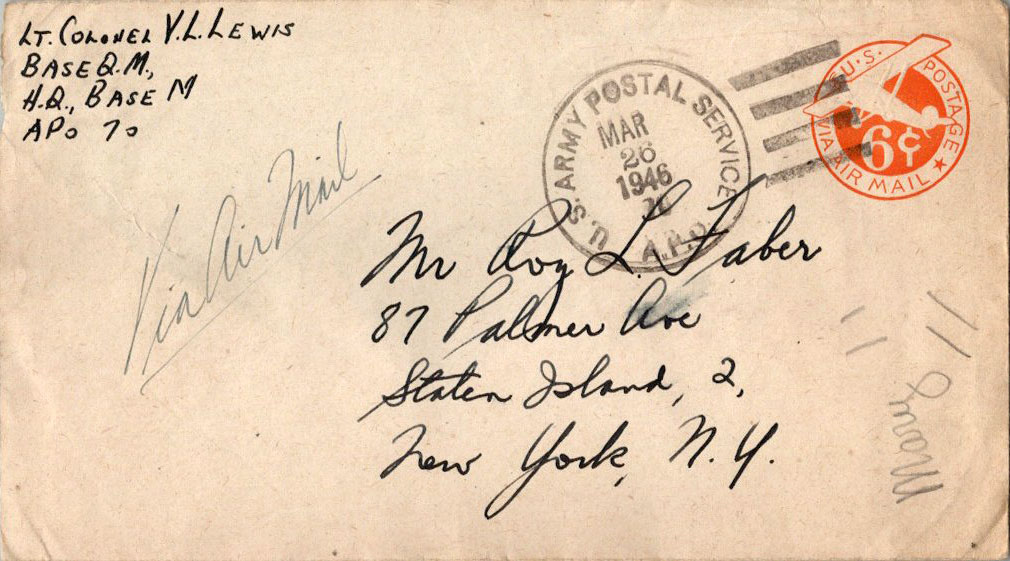 Lt. Colonel V.L. Lewis
Base Q.M.,
H.Q., Base M
APO 70
Via Air Mail
U.S. ARMY POSTAL SERVICE
MAR
26
1946
A.P.O.
U.S. POSTAGE
6¢
VIA AIR MAIL
Mr Roy L. Faber
87 Palmer Ave
Staten Island, 2,
New York, N.Y.